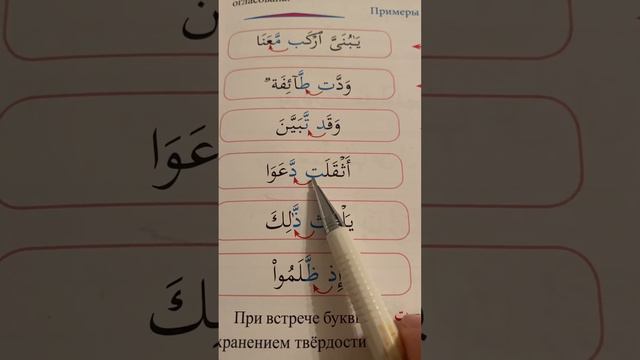 огласована.
Примеры
يَـٰبُنَىَّ ٱرْكَب مَّعَنَا
وَدَّت طَّآئِفَةٌ
وَقَد تَّبَيَّنَ
أَثْقَلَت دَّعَوَا
يَلْهَث ذَّٰلِكَ
إِذ ظَّلَمُوٓا۟
При встрече буквы
хранением твёрдости